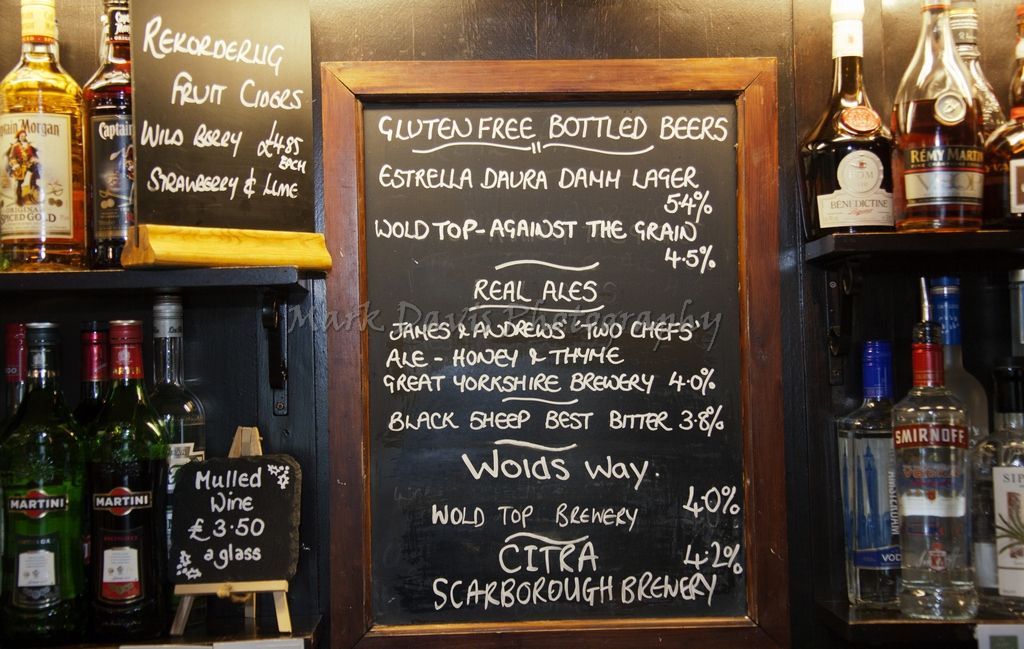 REKORDERLIG
FRUIT CIDERS
WILD BERRY £4.85
EACH
STRAWBERRY & LIME
GLUTEN FREE BOTTLED BEERS
ESTRELLA DAURA DAMM LAGER
5.4%
WOLD TOP - AGAINST THE GRAIN
4.5%
REAL ALES
Mark Davis Photography
JAMES & ANDREWS 'TWO CHEFS'
ALE - HONEY & THYME
GREAT YORKSHIRE BREWERY 4.0%
BLACK SHEEP BEST BITTER 3.8%
WOLDS WAY.
WOLD TOP BREWERY 4.0%
CITRA 4.2%
SCARBOROUGH BREWERY
Mulled
Wine
£3.50
a glass
Captain Morgan
ORIGINAL
SPICED GOLD
Captain
MARTINI
MARTINI
BENEDICTINE
RÉMY MARTIN
VSOP
SMIRNOFF
SIP